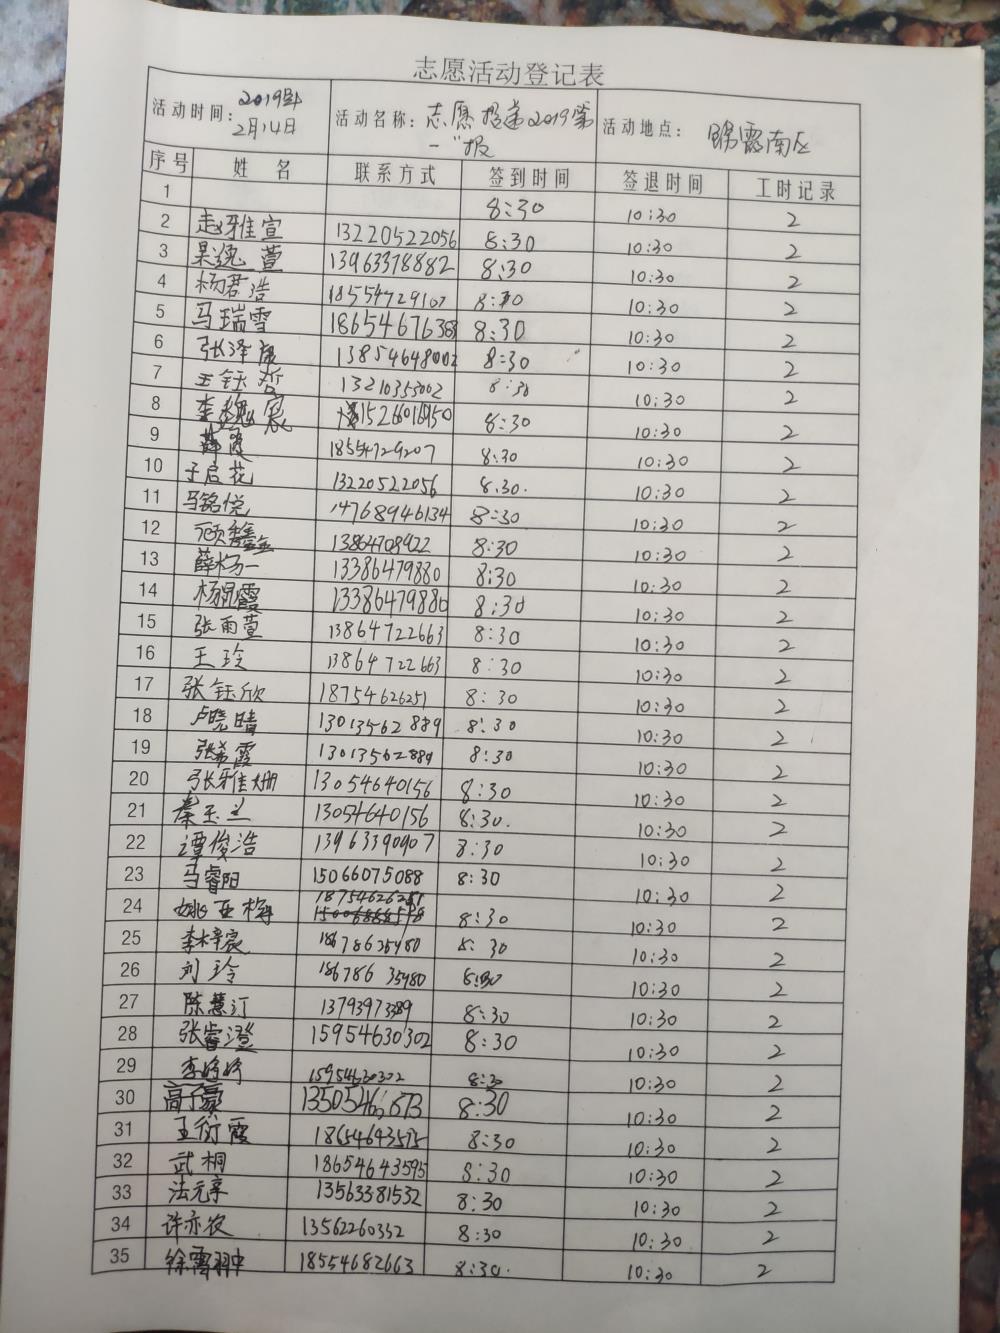 志愿活动登记表
活动时间: 2019年2月14日 活动名称: 志愿 2019第一报 活动地点: 南区
序号 姓名 联系方式 签到时间 签退时间 工时记录
1 8:30 10:30 2
2 赵雅宣 13220522056 8:30 10:30 2
3 13963378882 8:30 10:30 2
4 杨君浩 18554729107 8:30 10:30 2
5 马瑞雪 8:30 10:30 2
6 张泽 13854648002 8:30 10:30 2
7 王钰哲 13210353002 8:30 10:30 2
8 李魏宸 15266016950 8:30 10:30 2
9 18554729207 8:30 10:30 2
10 于启花 13220522056 8:30. 10:30 2
11 马铭悦 14768946134 8:30 10:30 2
12 13864708922 8:30 10:30 2
13 薛杨一 13386479880 8:30 10:30 2
14 13386479880 8:30 10:30 2
15 张雨萱 13864722663 8:30 10:30 2
16 王玲 13864722663 8:30 10:30 2
17 张钰欣 18754626251 8:30 10:30 2
18 卢晓晴 13013562889 8:30 10:30 2
19 张希霞 13013562889 8:30 10:30 2
20 张雅姗 13054640156 8:30 10:30 2
21 秦玉兰 13054640156 8:30. 10:30 2
22 谭俊浩 13963390907 8:30 10:30 2
23 马睿阳 15066075088 8:30 10:30 2
24 姚亚梅 18754626251 8:30 10:30 2
25 李梓宸 18678635480 8:30 10:30 2
26 刘玲 18678635480 8:30 10:30 2
27 陈慧汀 13793973389 8:30 10:30 2
28 张睿澄 15954630302 8:30 10:30 2
29 李婷婷 15954630302 8:30 10:30 2
30 高子豪 8:30 10:30 2
31 王衍霞 18654643595 8:30 10:30 2
32 武桐 18654643595 8:30 10:30 2
33 法元享 13563381532 8:30 10:30 2
34 许亦农 13562260332 8:30 10:30 2
35 徐 18554682663 8:30. 10:30 2